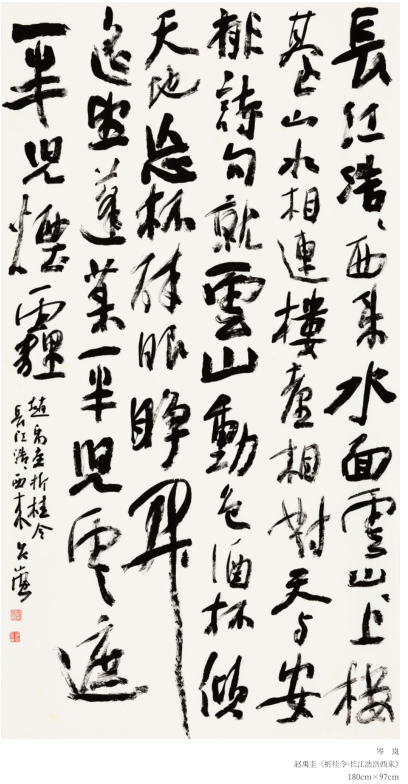 長江浩〻西來水面雲山〻上樓
臺山水相連樓臺相對天与安
排詩句就雲山動色酒杯傾
天地忘怀醉眼睁開
遙望蓬萊一半兒雲遮
一半兒煙霾
趙禹圭折桂令
長江浩〻西來 岑嵐
岑 岚
赵禹圭《折桂令·长江浩浩西来》
180cm×97cm